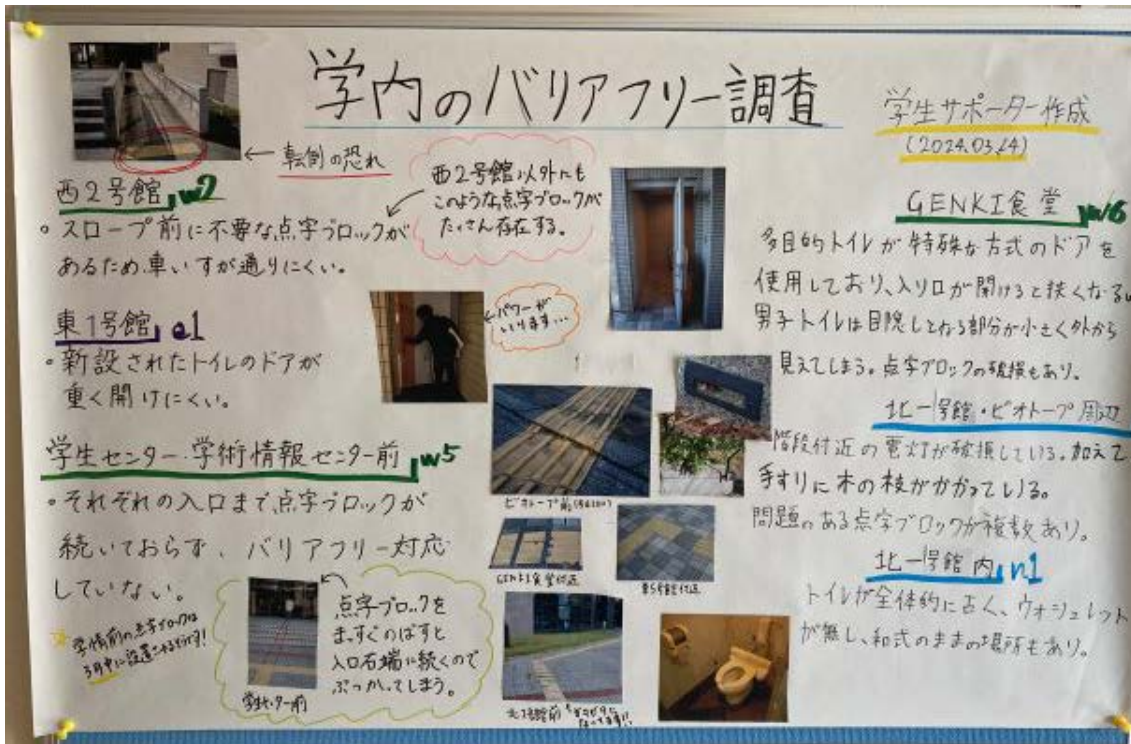 学内のバリアフリー調査
学生サポーター作成
(2024.03.14)
←転倒の恐れ
西2号館 w2
・スロープ前に不要な点字ブロックが
あるため、車いすが通りにくい。
西2号館以外にも
このような点字ブロックが
たくさん存在する。
東1号館 e1
・新設されたトイレのドアが
重く開けにくい。
←パワーが
いります…
学生センター・学術情報センター前 w5
・それぞれの入口まで点字ブロックが
続いておらず、バリアフリー対応
していない。
学情前の点字ブロックは
3月中に設置されるそうです!
点字ブロックを
まっすぐのばすと
入口右端に続くので
ぶつかってしまう。
学生センター前
ビオトープ前
GENKI食堂付近
号館付近
号館前
GENKI食堂 w6
多目的トイレが特殊な方式のドアを
使用しており、入り口が開けると狭くなる。
男子トイレは目隠しとなる部分が小さく外から
見えてしまう。点字ブロックの破損もあり。
北一号館・ビオトープ周辺
階段付近の電灯が破損している。加えて
手すりに木の枝がかかっている。
問題のある点字ブロックが複数あり。
北一号館内 n1
トイレが全体的に古く、ウォシュレット
が無し、和式のままの場所もあり。